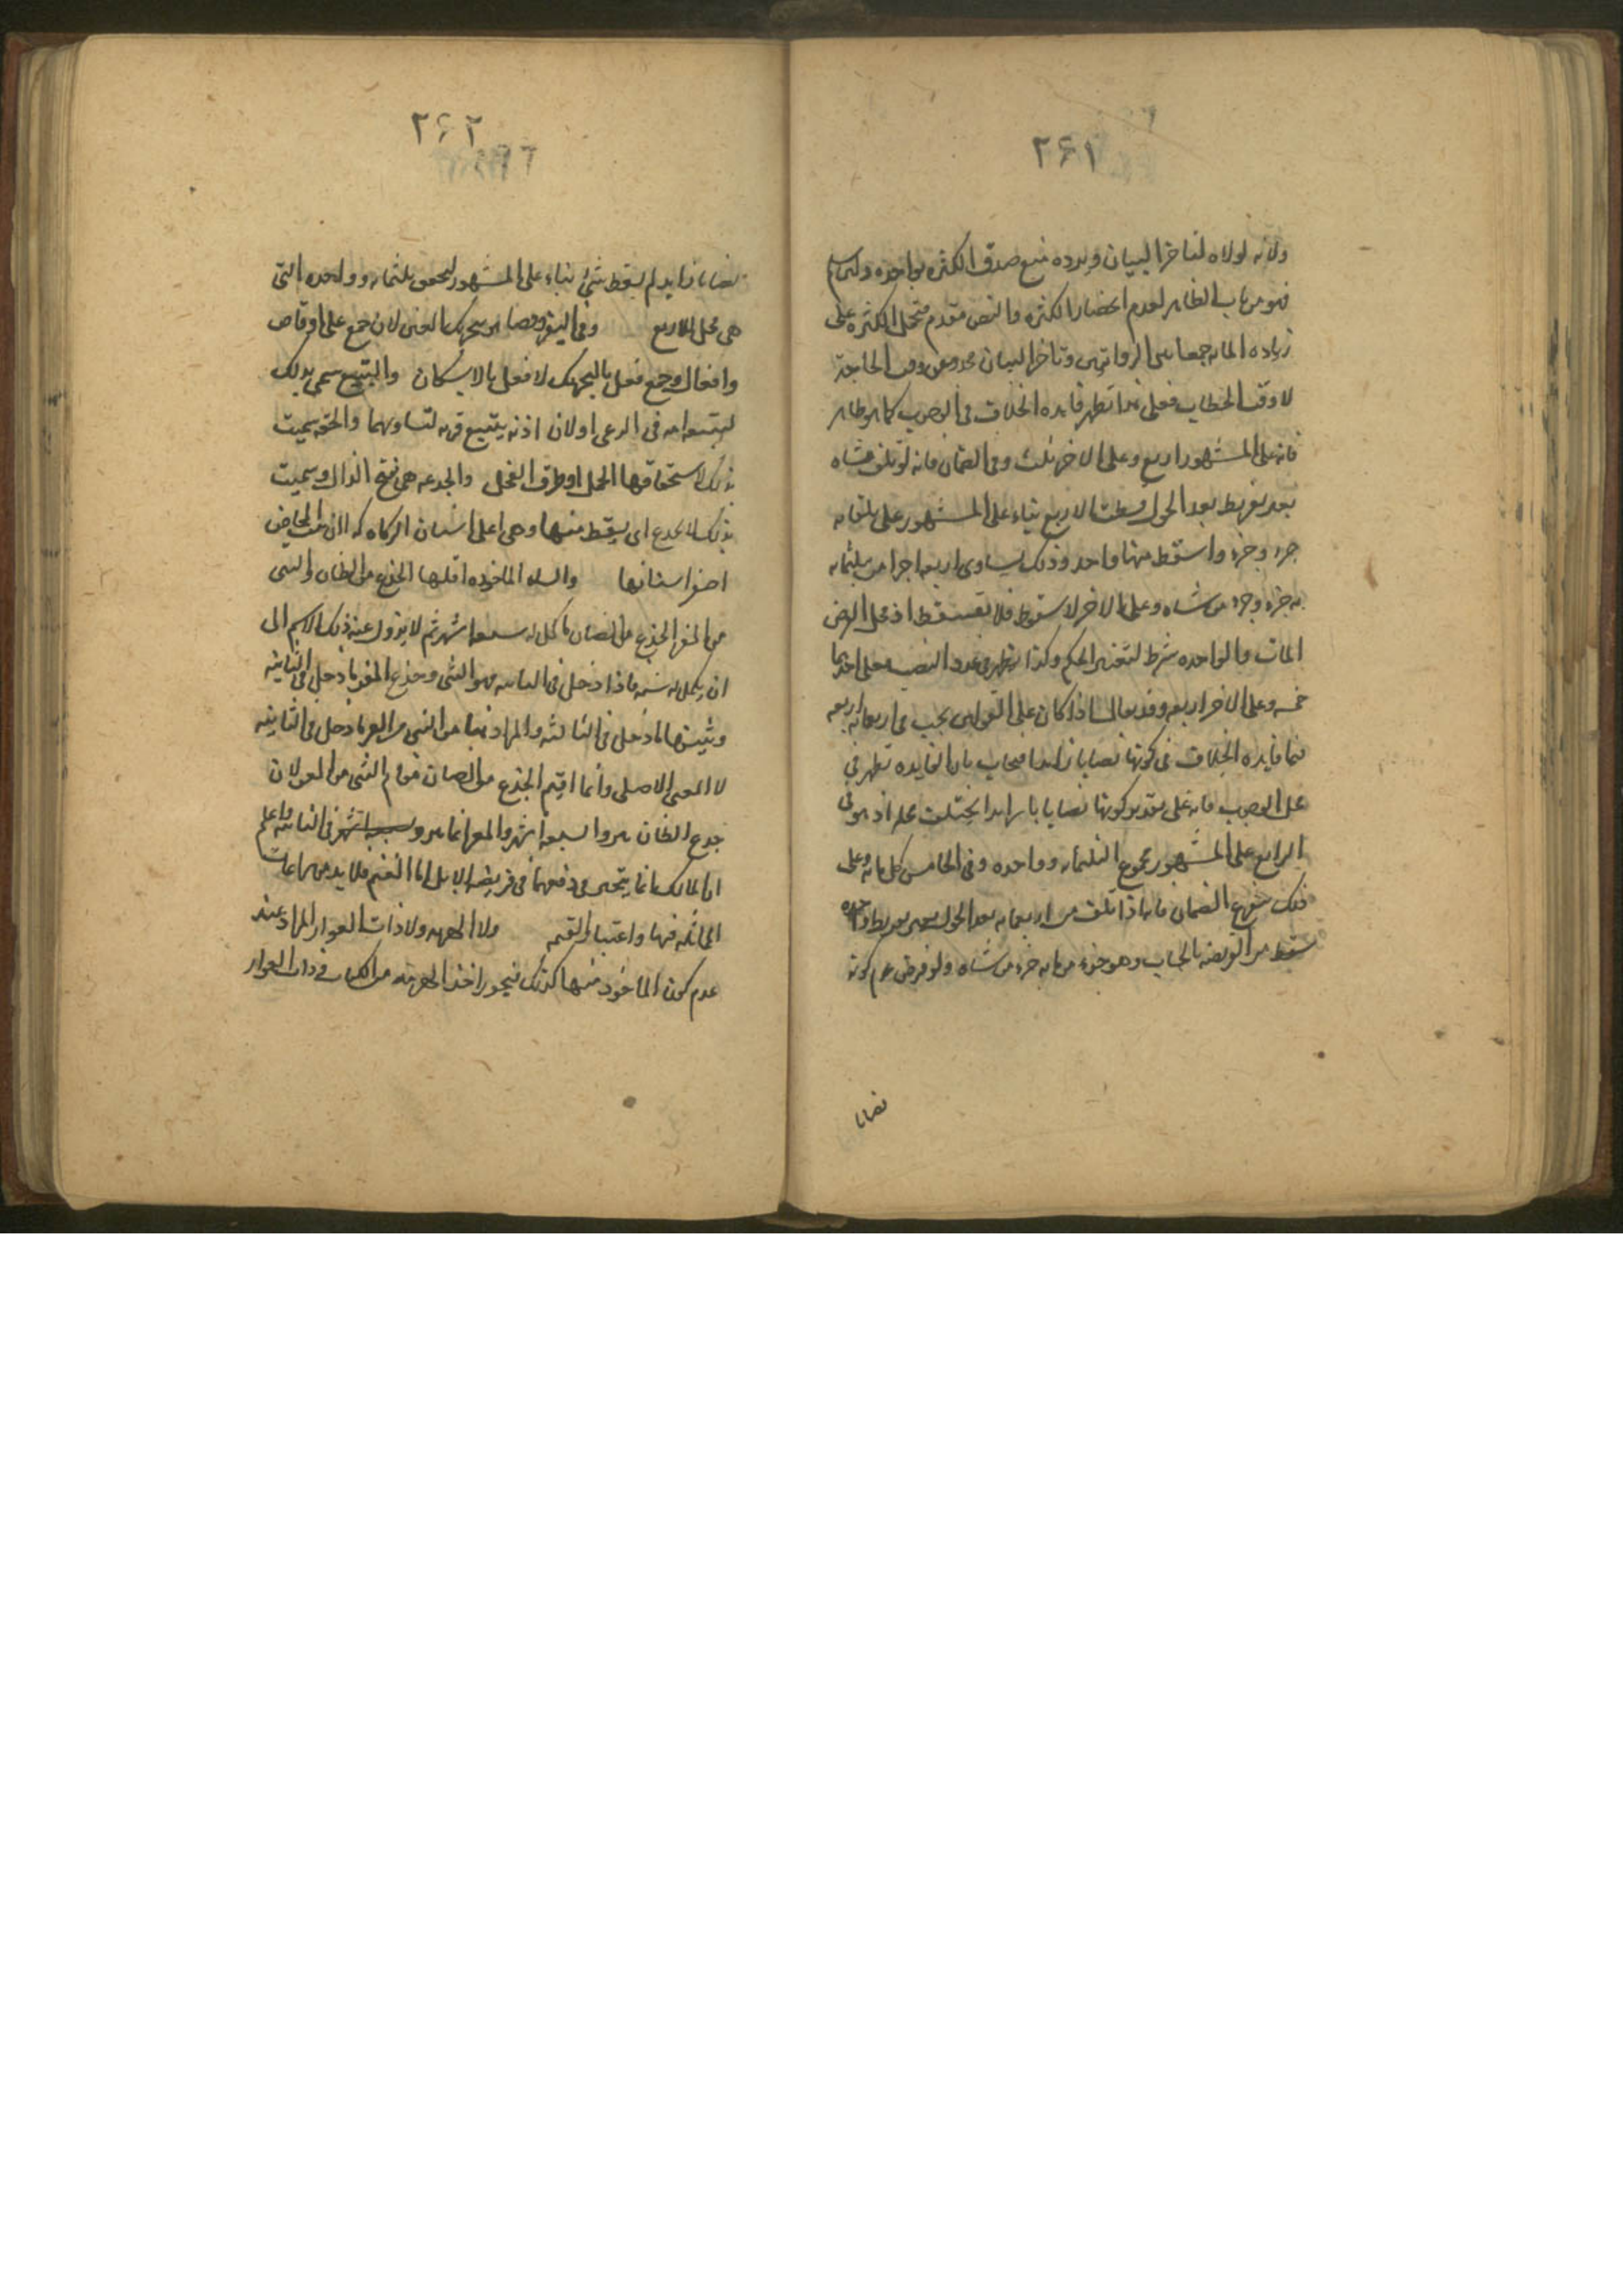 ۲۶۱
ولانه لولاه لتاخر البيان ويرده منع صدق الكثرة بواحدة ولئن سلم
فهو من باب الظاهر لعدم انحصار الكثره والنص مقدم فتحمل الكثره على
زياده المائه جمعا بين الروايتين وتاخر البيان عن وقت الحاجة
لا وقت الخطاب فعلى هذا تظهر فايده الخلاف فى الوجوب كما هو ظاهر
فانه على المشهور اربع وعلى الاخر ثلث وفى الضمان فانه لو تلف شاه
بعد تفريط بعد الحول بسطت الاربع بناء على المشهور على ثلثمائه
جزء وجزء واسقط منها واحد وذلك يساوى اربعه اجزا من ثلثمائه
جزء وجزء من شاه وعلى الاخر لا سقوط فلا تقسط اذ محل الفرض
المات والواحده شرط لتغير الحكم وكذا تظهر فى عدد النصب فعلى احدهما
خمسه وعلى الاخر اربعه وقد يقال اذا كان على القولين يجب فى اربعمائه اربعه
فما فايده الخلاف فى كونها نصابا زايدا فيجاب بان الفايده تظهر فى
محل الوجوب فانه على تقدير كونها نصابا زايدا يختلف محله اذ هو فى
الرابع على المشهور مجموع الثلثمائه وواحده وفى الخامس كل مائه وعلى
ذلك يتفرع الضمان فانه اذا تلف من اربعمائه بعد الحول بغير تفريط واحده
سقط من الفريضه بالحساب وهو جزء من مائه جزء من شاه ولو فرض عدم كونه
نصابا
۲۶۲
نصابا زايدا لم يسقط شئ بناء على المشهور لتحقق ثلثمائه وواحده التى
هى محل الاربع وفى اليتيمة وقصا بتحريك العين لان جمع على اوقاص
وافعال جمع فعل بالتحريك لا فعل بالاسكان والتبيع سمى بذلك
لتبيعه امه فى الرعى او لان اذنه يتبع قرنه لتساويهما والحقه سميت
بذلك لاستحقاقها الحمل او طرق الفحل والجذعه هى بفتح الذال وسميت
بذلك لانها تجذع اى يسقط سنها وهى اعلى اسنان الزكاه كما ان بنت المخاض
اصغر اسنانها والشاه الماخوذه اقلها الجذع من الضان والثنى
من المعز الجذع من الضان ما كمل له سبعه اشهر ثم لا يزول عنه ذلك الاسم الى
ان يكمل له سنه فاذا دخل فى الثانيه فهو الثنى وجذع المعز ما دخل فى الثانيه
وثنيها ما دخل فى الثالثه والمراد هنا من الثنى من المعز ما دخل فى الثانيه
لا المعنى الاصلى وانما اقيم الجذع من الضان مقام الثنى من المعز لان
جذع الضان ينزو لسبعه اشهر والمعز انما ينزو فى الثانيه واعلم
ان المالك انما يتخير فى دفعهما فى فريضه الابل اما الغنم فلا بد من مراعات
المماثله فيها واعتبار القيمه ولا الهرمه ولا ذات العوار المراد عند
عدم كون الماخوذ منها كذلك فيجوز اخذ الهرمه من الكبار وذات العوار